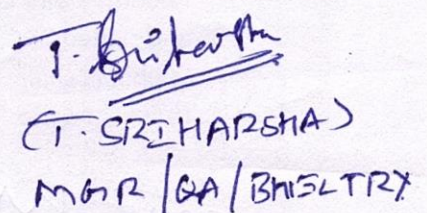 T. Sriharsha
(T. SRIHARSHA)
MGR/QA/BHEL TRY